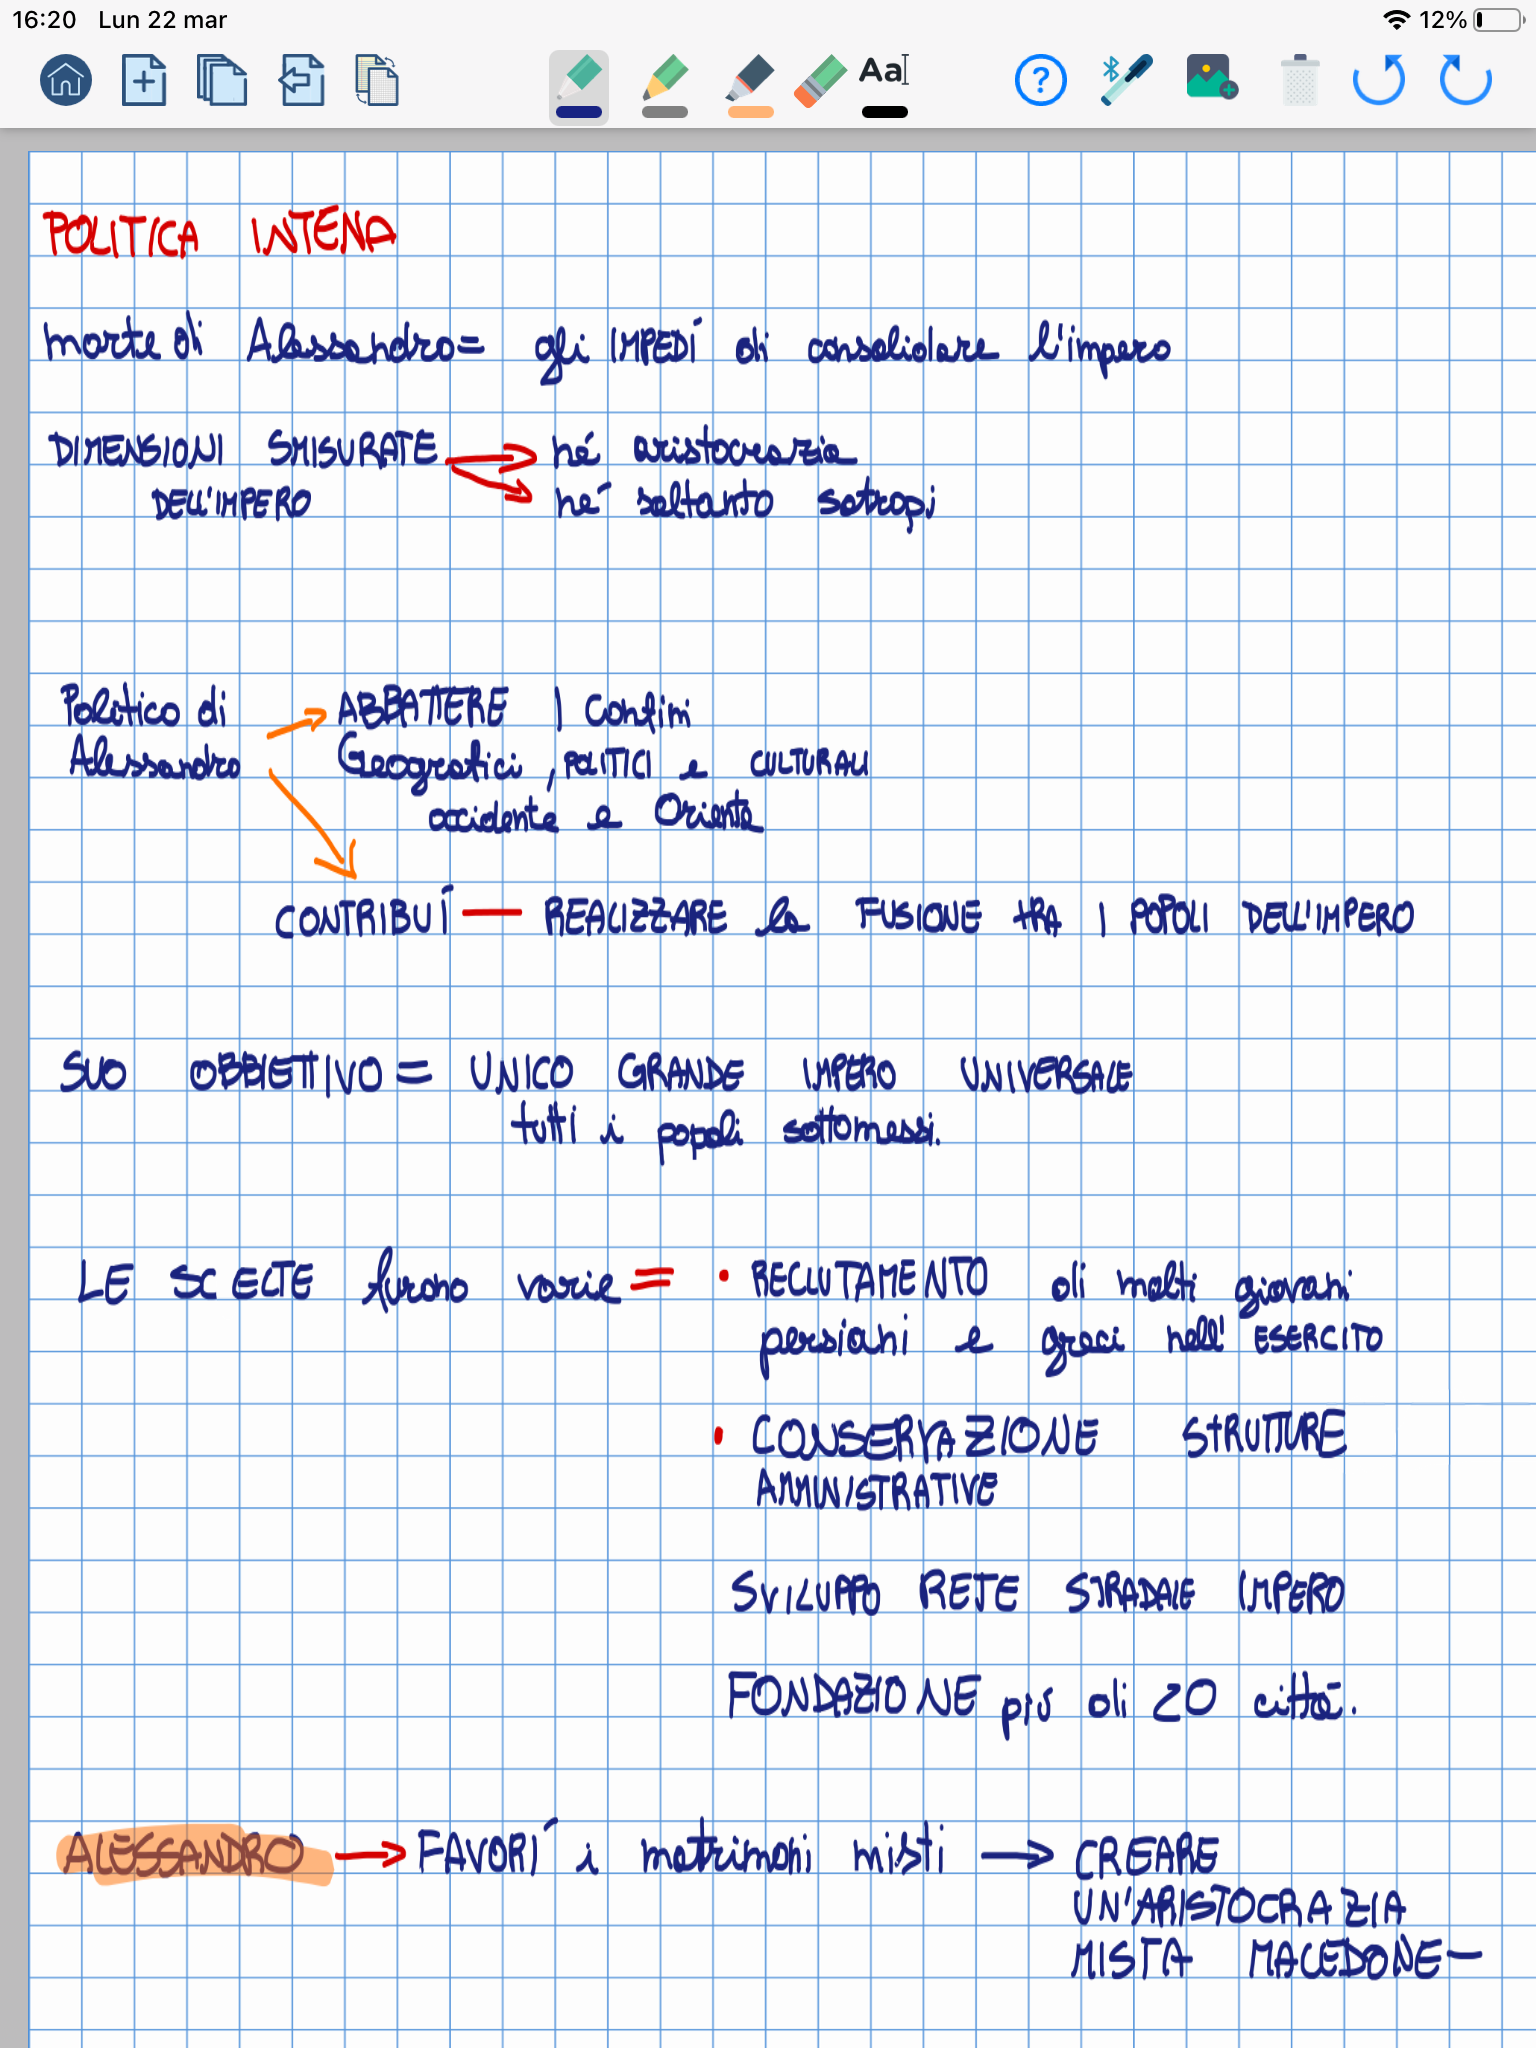 16:20 Lun 22 mar 12%
Aa
POLITICA INTENA
morte di Alessandro = gli IMPEDÍ di consolidare l'impero
DIMENSIONI SMISURATE né aristocrazia
DELL'IMPERO né soltanto satrapi
Politica di ABBATTERE I confini
Alessandro Geografici, POLITICI e CULTURALI
occidente e Oriente
CONTRIBUÍ — REALIZZARE la FUSIONE tRA I POPOLI DELL'IMPERO
SUO OBBIETTIVO = UNICO GRANDE IMPERO UNIVERSALE
tutti i popoli sottomessi.
LE SCELTE furono varie = • RECLUTAMENTO di molti giovani
persiani e greci nell' ESERCITO
• CONSERVAZIONE StRUTTURE
AMMINISTRATIVE
SVILUPPO RETE STRADALE IMPERO
FONDAZIONE più di 20 città.
ALESSANDRO → FAVORÍ i matrimoni misti → CREARE
UN'ARISTOCRAZIA
MISTA MACEDONE—